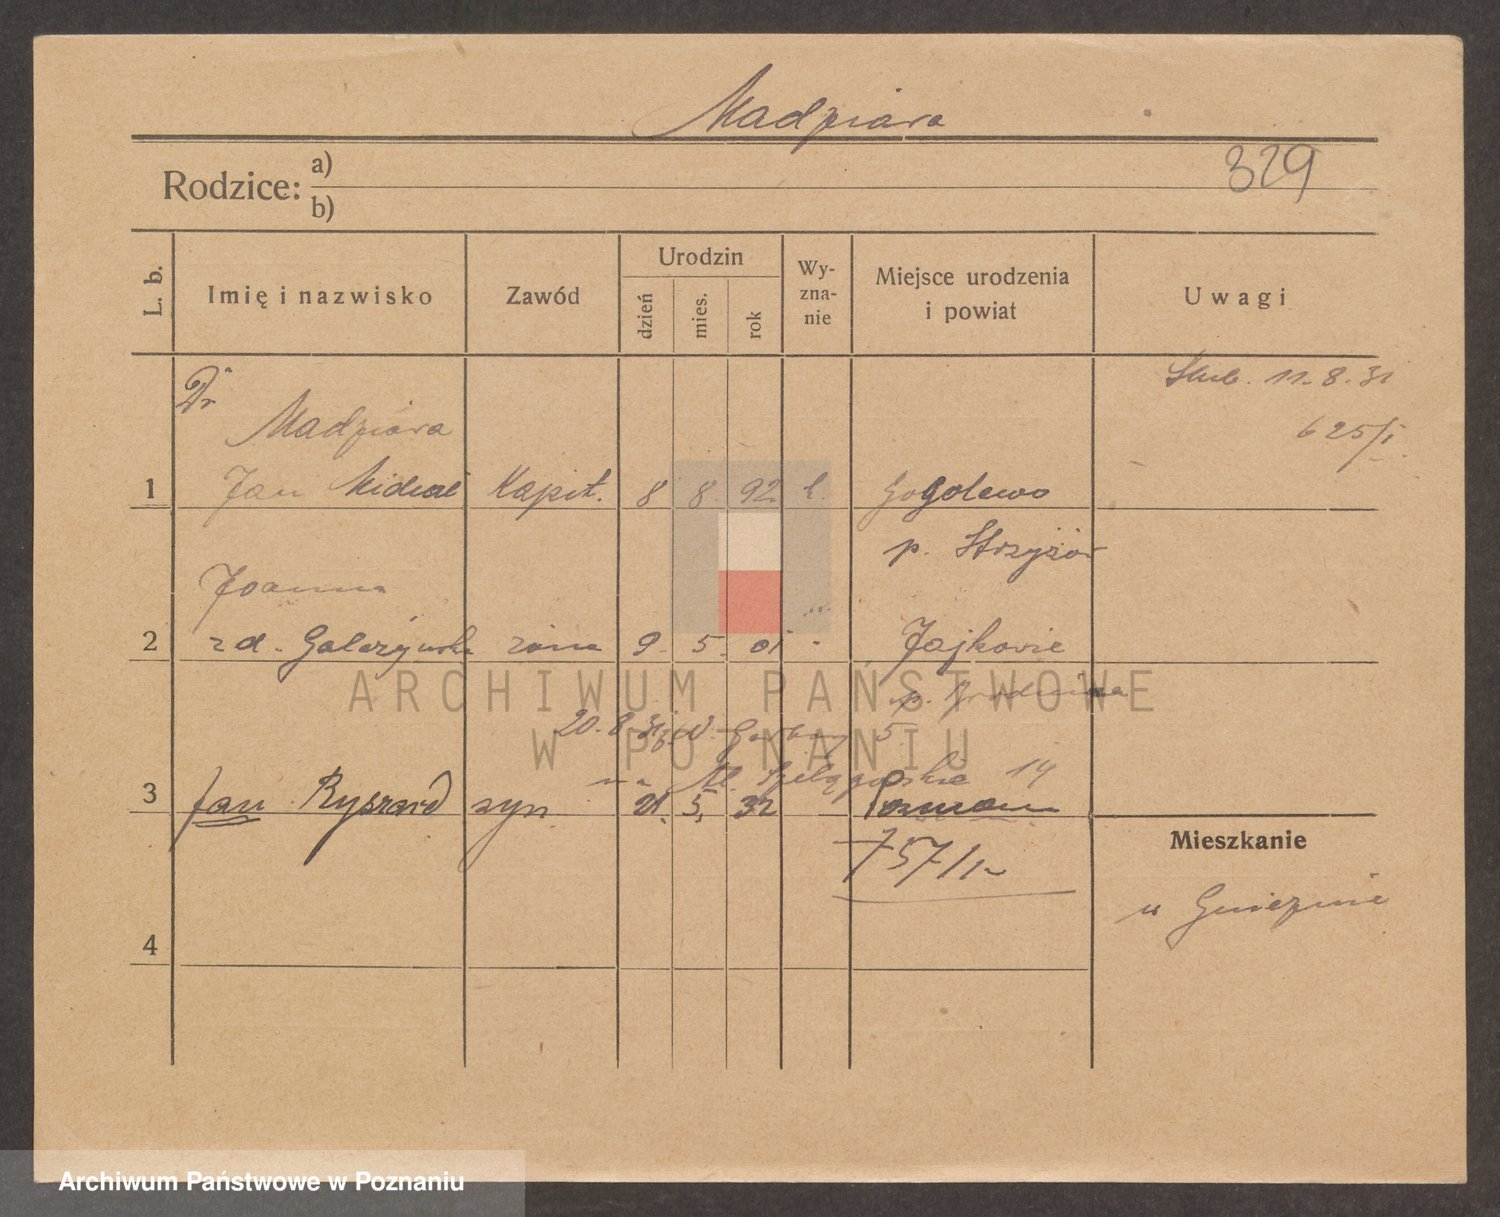 Madziara
329
Rodzice: a)
b)
L. b.
Imię i nazwisko
Zawód
Urodzin
dzień
mies.
rok
Wy-
zna-
nie
Miejsce urodzenia
i powiat
Uwagi
11. 8. 31
625/I
Dr
Madziara
1 Jan Michał Kapit. 8 8. 92. k. Gogolewo
p. Strzyżów
Joanna
2 zd. żona 9. 5. 01 Jajkowie
p.
20. 8. 31 5
na 14
3 Jan Ryszard syn 21. 5, 32 Poznań
757/I
Mieszkanie
w Gnieźnie
4
ARCHIWUM PAŃSTWOWE
W POZNANIU
Archiwum Państwowe w Poznaniu